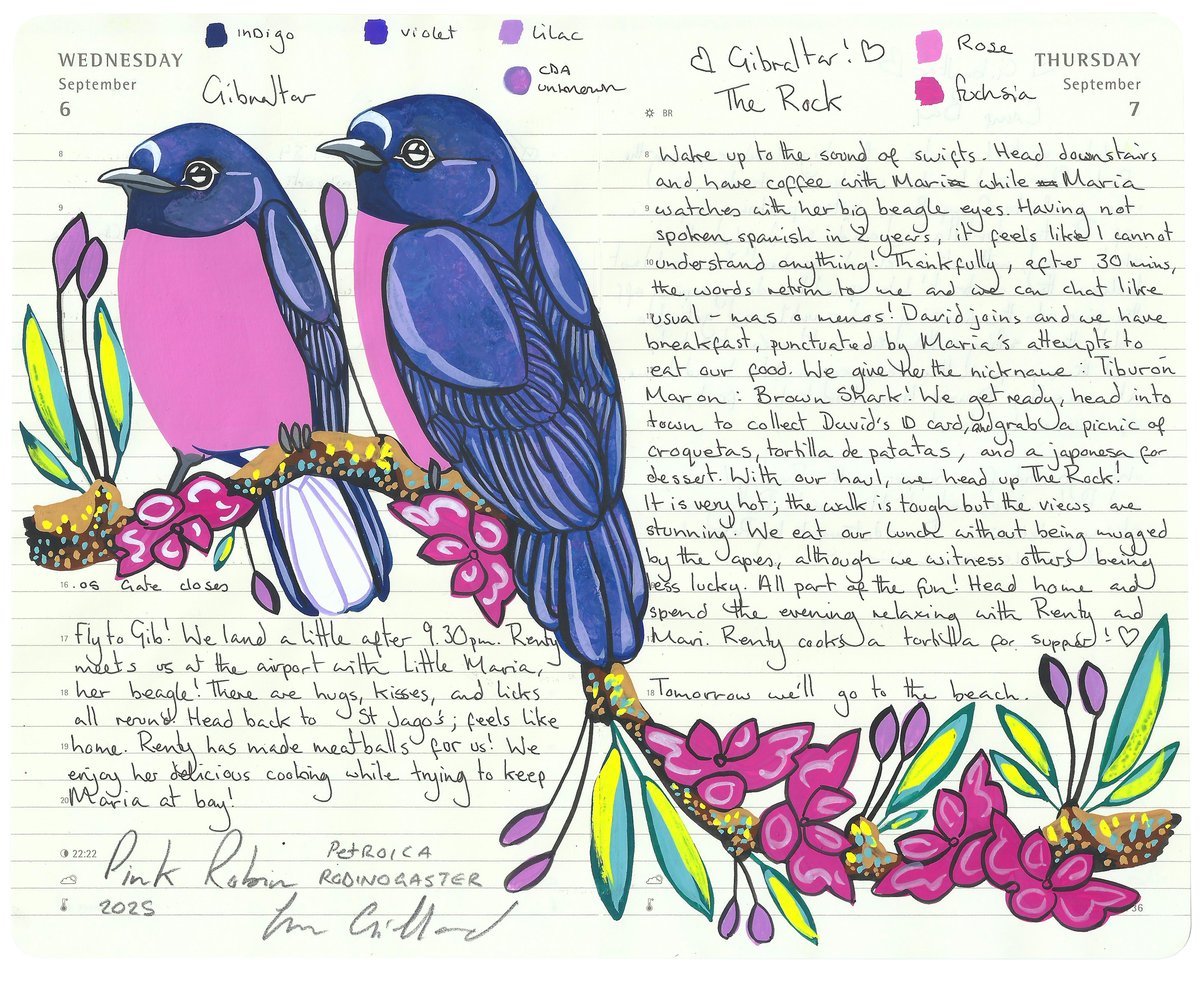 WEDNESDAY
September
6
Indigo
Violet
Lilac
CDA
unknown
Gibraltar
8
9
16
.05 Gate closes
17 Fly to Gib! We land a little after 9.30pm. Renty
meets us at the airport with Little Maria,
18 her beagle! There are hugs, kisses, and licks
all round. Head back to St Jago's; feels like
19 home. Renty has made meatballs for us! We
enjoy her delicious cooking while trying to keep
20 Maria at bay!
22:22
Pink Robin
PETROICA
RODINOGASTER
2025
♡ Gibraltar! ♡
The Rock
Rose
Fuchsia
THURSDAY
September
7
BR
8 Wake up to the sound of swifts. Head downstairs
and have coffee with Mari while Maria
9 watches with her big beagle eyes. Having not
spoken spanish in 2 years, it feels like I cannot
10 understand anything! Thankfully, after 30 mins,
the words return to me and we can chat like
usual - mas o menos! David joins and we have
breakfast, punctuated by Maria's attempts to
eat our food. We give her the nickname: Tiburón
Maron: Brown Shark! We get ready, head into
town to collect David's ID card, and grab a picnic of
croquetas, tortilla de patatas, and a japonesa for
dessert. With our haul, we head up The Rock!
It is very hot; the walk is tough but the views are
stunning. We eat our lunch without being mugged
by the apes, although we witness others being
less lucky. All part of the fun! Head home and
spend the evening relaxing with Renty and
Mari. Renty cooks a tortilla for supper! ♡
18 Tomorrow we'll go to the beach.
36